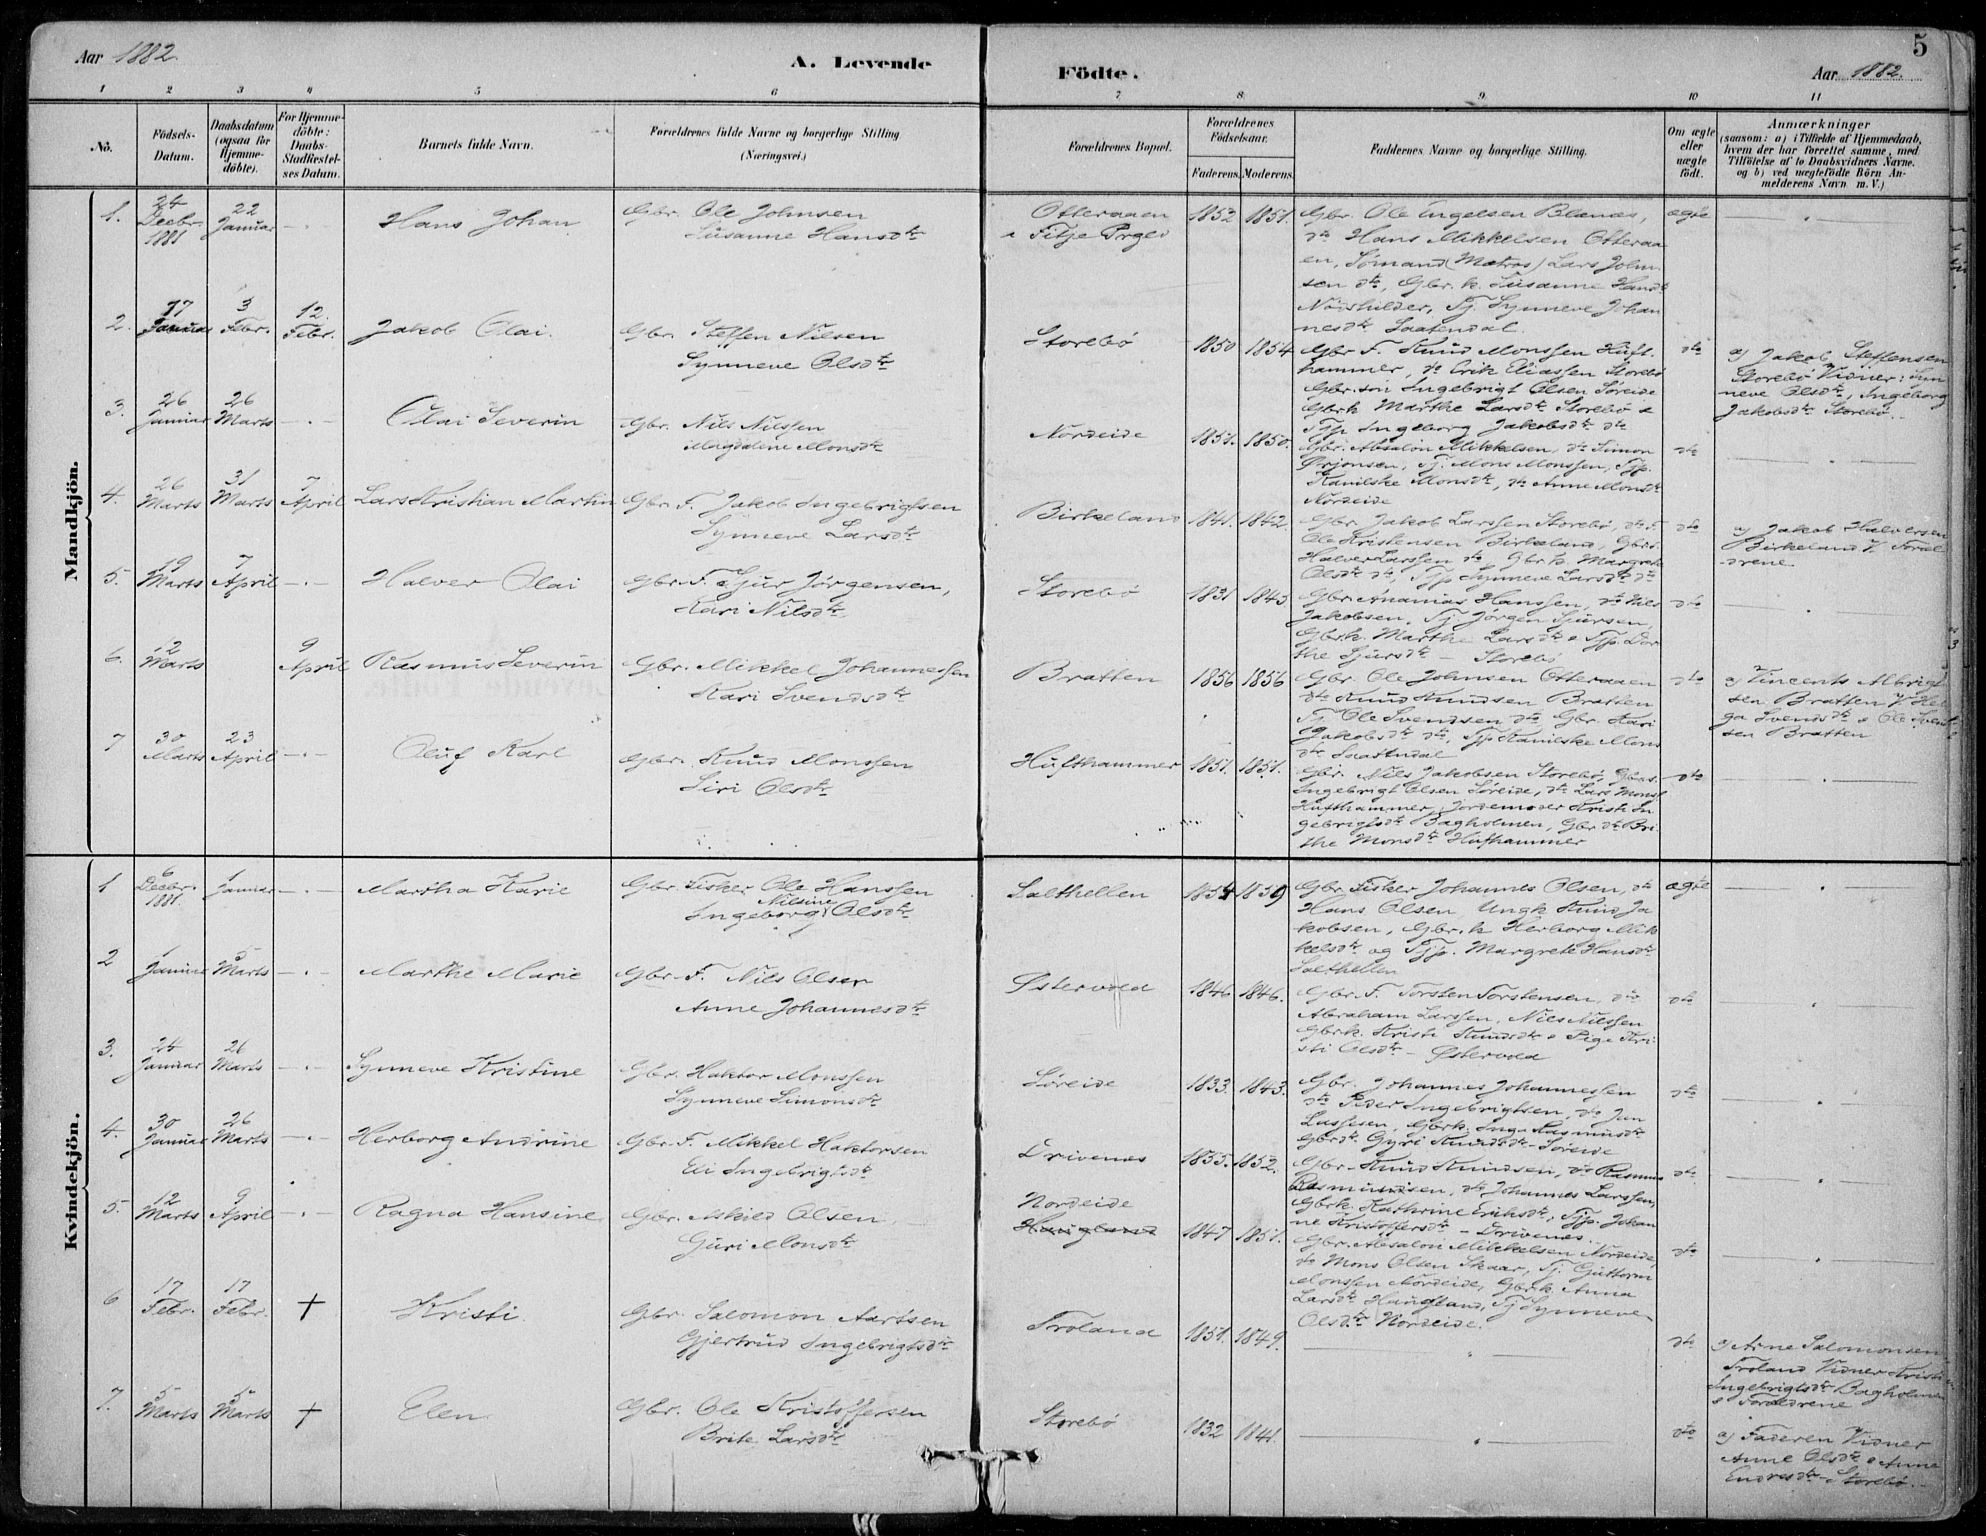 Aar 1882.
A. Levende
Födte.
Aar 1882.
5
1 2 3 4 5 6 7 8 9 10 11
No.
Födsels-Datum.
Daabsdatum (ogsaa for Hjemme-döbte).
For Hjemme-döbte: Daabs-Stadfæstel-ses Datum.
Barnets fulde Navn.
Forældrenes fulde Navne og borgerlige Stilling (Næringsvei.)
Forældrenes Bopæl.
Forældrenes Födselsaar.
Faderens. Moderens.
Faddernes Navne og borgerlige Stilling.
Om ægte eller uægte födt.
Anmærkninger
(saasom: a) i Tilfælde af Hjemmedaab,
hvem der har forrettet samme, med
Tilföielse af to Daabsvidners Navne,
og b) ved uægtefödte Börn An-
melderens Navn m. V.)
Mandkjön.
1. 24 Decbr. 1881 22 Januar Hans Johan Gbr. Ole Johnsen
Susanne Hansdtr
Otteraaen
Fitje Prgld 1852 1851. Gbr. Ole Engelsen Blænæs, ægte
dto Hans Mikkelsen Otteraa
en, Sömand (Matros) Lars John
sen dto, Gbr. k. Susanne Hansdtr
Tj. Synneve Johan
nesdtr
2. 17 Januar 3 Febr. 12. Febr. Jakob Olai. Gbr. Steffen Nilsen
Synneve Olsdtr
Storebø 1850 1854 Gbr. F. Knud Monssen Huft-
hammer, dto Erik Eliassen Storebø
Gbr. søn Ingebrigt Olsen Søreide
Gbrk Marthe Larsdtr Storebø &
Tjp Ingeborg Jakobsdtr dto
dto a) Jakob Steffensen
Storebø Vidner: Syn
neve Olsdtr, Ingeborg
Jakobsdtr Storebø.
3. 26 Januar 26 Marts Olai Severin Gbr. Nils Nilssen
Magdalene Monsdtr
Nordeide 1851. 1850. Gbr. Absalon Mikkelsen, dto Simon dto
Ørjansen, Tj. Mons Monssen, Tjp.
Kanilske Monsdtr, dto Anne Monsdtr
Nordeide
4. 26 Marts 31 Marts 7 April Lars Kristian Martin Gbr. F. Jakob Ingebrigtsen
Synneve Larsdtr
Birkeland 1841. 1842. Gbr. Jakob Larssen Storebø, dto F. dto
Ole Kristensen Birkeland, Gbrs.
Halver Larssen dto Gbr. k. Margrete
Olsdtr dto, Tjp Synneve Larsdtr dto
a) Jakob Halversen
Birkeland V. Foræl
drene
5. 19 Marts 7 April Halver Olai Gbr. F. Sjur Jørgensen,
Kari Nilsdtr
Storebø 1831 1843 Gbr. Ananias Hanssen, dto Nils dto
Jakobsen, Tj. Jörgen Sjursen,
Gbrk. Marthe Larsdtr & Tjp. Dor
the Sjursdtr - Storebø
6. 12 Marts 9 April Rasmus Severin Gbr. Mikkel Johannessen
Kari Svendsdtr
Bratten 1856 1856 Gbr. Ole Johnsen Otteraaen dto
dto Knud Knudsen Bratten
Tj Ole Svendsen dto Gbr. Kari
Jakobsdtr dto, Tjp Kanilske Mons
dtr
a) Vincents Albrigt
sen Bratten V. Hel
ga Svendsdtr & Ole Svend
sen Bratten
7 30 Marts 23 April Oluf Karl Gbr. Knud Monssen
Siri Olsdtr
Hufthammer 1851. 1851. Gbr. Nils Jakobsen Storebø, Gbrs. dto
Ingebrigt Olsen Søreide, dto Lars Mons
Hufthammer, Jordemoder Kristi In
gebrigtsdtr Bagholmen, Gbr. dtr Bri
the Monsdtr Hufthammer
Kvindekjön.
1 6 Decbr. 1881. 1 Januar Martha Karie Gbr. Fisker Ole Hanssen
Nilsine
Ingeborg Olsdtr
Salthellen 1854 1859 Gbr. Fisker Johannes Olsen, dto ægte
Hans Olsen, Ungk Knud Ja
kobsen, Gbr. k Herborg Mik
kelsdtr og Tjp. Margrete Hansdtr
Salthellen
2 1 Januar 5 Marts Marthe Marie Gbr. F. Nils Olsen
Anne Johannesdtr
Østervold 1846 1846. Gbr. F. Torsten Torstensen, dto dto
Abraham Larssen, Nils Nilssen
Gbrk. Kristi Knudsdtr & Pige Kri
sti Olsdtr - Østervold
3. 24 Januar 26 Marts Synneve Kristine Gbr. Haktor Monssen
Synneve Simonsdtr
Søreide 1833. 1843. Gbr. Johannes Johannessen dto
dto Peder Ingebrigtsen, dto Jan
Lassesen, Gbrk. Inga Rasmusdtr
Gbrdtr. Gyri Knudsdtr - Søreide
4. 30 Januar 26 Marts Herborg Andrine Gbr. F. Mikkel Haktorsen
Eli Ingebrigtsdtr
Drivenes 1855. 1852. Gbr. Knud Knudsen, dto Rasmus dto
Rasmundsen, dto Johannes Larssen,
Gbrk Kathrine Eriksdtr, Tjp. Johan
ne Kristoffersdtr - Drivenes.
5. 12 Marts 9 April Ragna Hansine Gbr. Askild Olsen
Guri Monsdtr
Nordeide
Haugland 1847 1851. Gbr. Absalon Mikkelsen Nordeide, dto
dto Mons Olsen Skaar, Tj. Guttorm
Monssen Nordeide, Gbrk. Anna
Larsdtr Haugland, Tj Synneve
Olsdtr Nordeide.
6 17 Febr. 17 Febr. + Kristi Gbr. Salomon Aartsen
Gjertrud Ingebrigtsdtr
Troland 1851. 1849. dto a) Arne Salomonsen
Troland Vidner Kristi
Ingebrigtsdtr Bagholmen
& Forældrene
7. 5 Marts 5 Marts + Elen Gbr. Ole Kristoffersen
Brite Larsdtr
Storebø 1832 1841. dto a) Faderen Vidner
Anne Olsdtr & Anne
Endresdtr - Storebø.